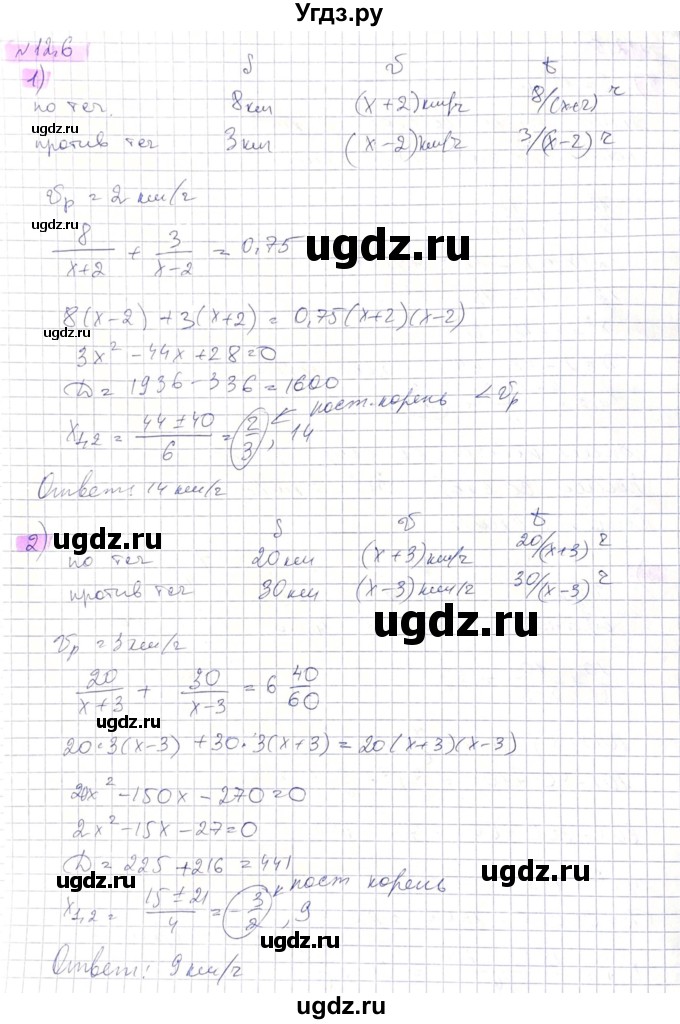 Угдз.ру
№12.6
1) S V t
по теч. 8 км (x+2) км/ч 8/(x+2) ч
ugdz.ru
против теч 3 км (x-2) км/ч 3/(x-2) ч
ugdz.ru
Vр = 2 км/ч
ugdz.ru
8/(x+2) + 3/(x-2) = 0,75
ugdz.ru
8(x-2) + 3(x+2) = 0,75(x+2)(x-2)
3x² - 44x + 28 = 0
D = 1936 - 336 = 1600
x1,2 = (44 ± 40)/6 = 2/3, 14 ← пост. корень < Vр
ugdz.ru
Ответ: 14 км/ч
2) S V t
ugdz.ru
по теч 20 км (x+3) км/ч 20/(x+3) ч
против теч 30 км (x-3) км/ч 30/(x-3) ч
ugdz.ru
Vр = 3 км/ч
20/(x+3) + 30/(x-3) = 6 40/60
ugdz.ru
20·3(x-3) + 30·3(x+3) = 20(x+3)(x-3)
20x² - 150x - 270 = 0
2x² - 15x - 27 = 0
D = 225 + 216 = 441
ugdz.ru
ugdz.ru
x1,2 = (15 ± 21)/4 = -3/2, 9 ← пост корень
ugdz.ru
Ответ: 9 км/ч
ugdz.ru
ugdz.ru